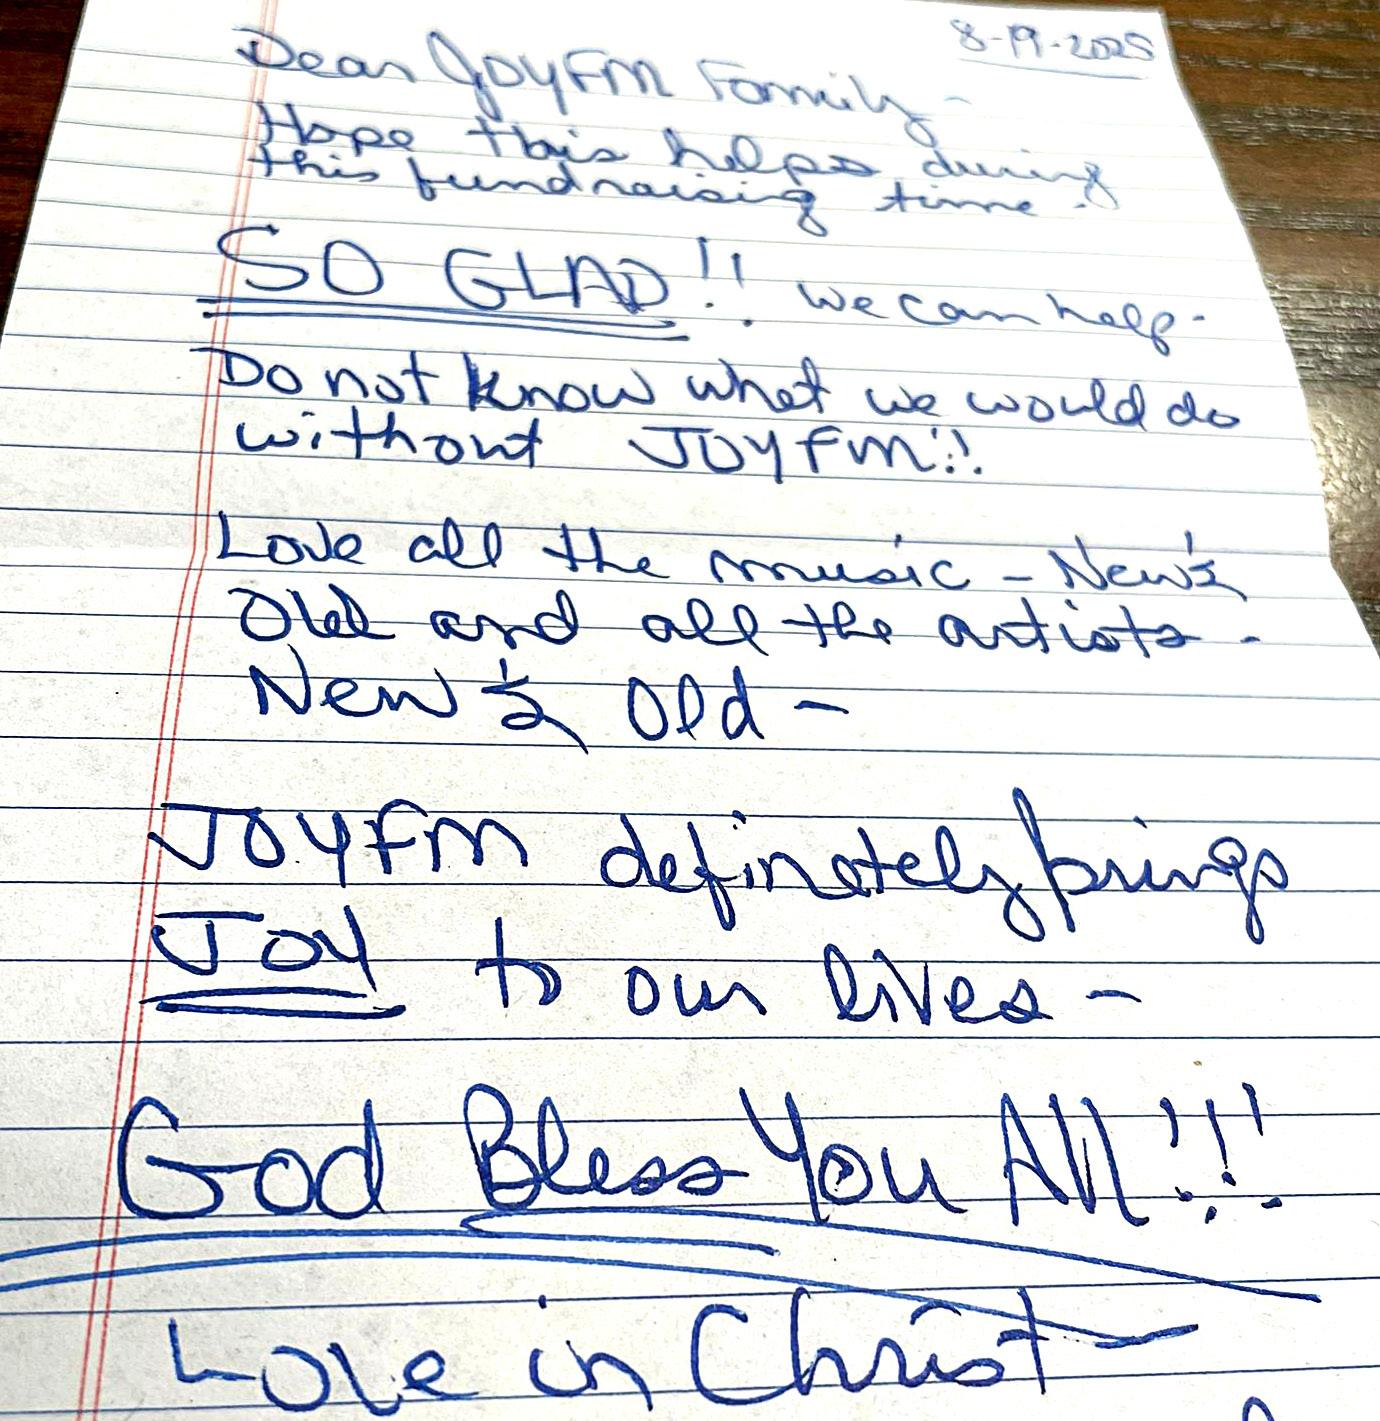 8-19-2025
Dear JOYFM Family -
Hope this helps during
this fundraising time.
SO GLAD!! we can help.
Do not know what we would do
without JOYFM!!
Love all the music - New &
Old and all the artists -
New & Old -
JOYFM definately brings
JOY to our lives -
God Bless You All!!!
Love in Christ